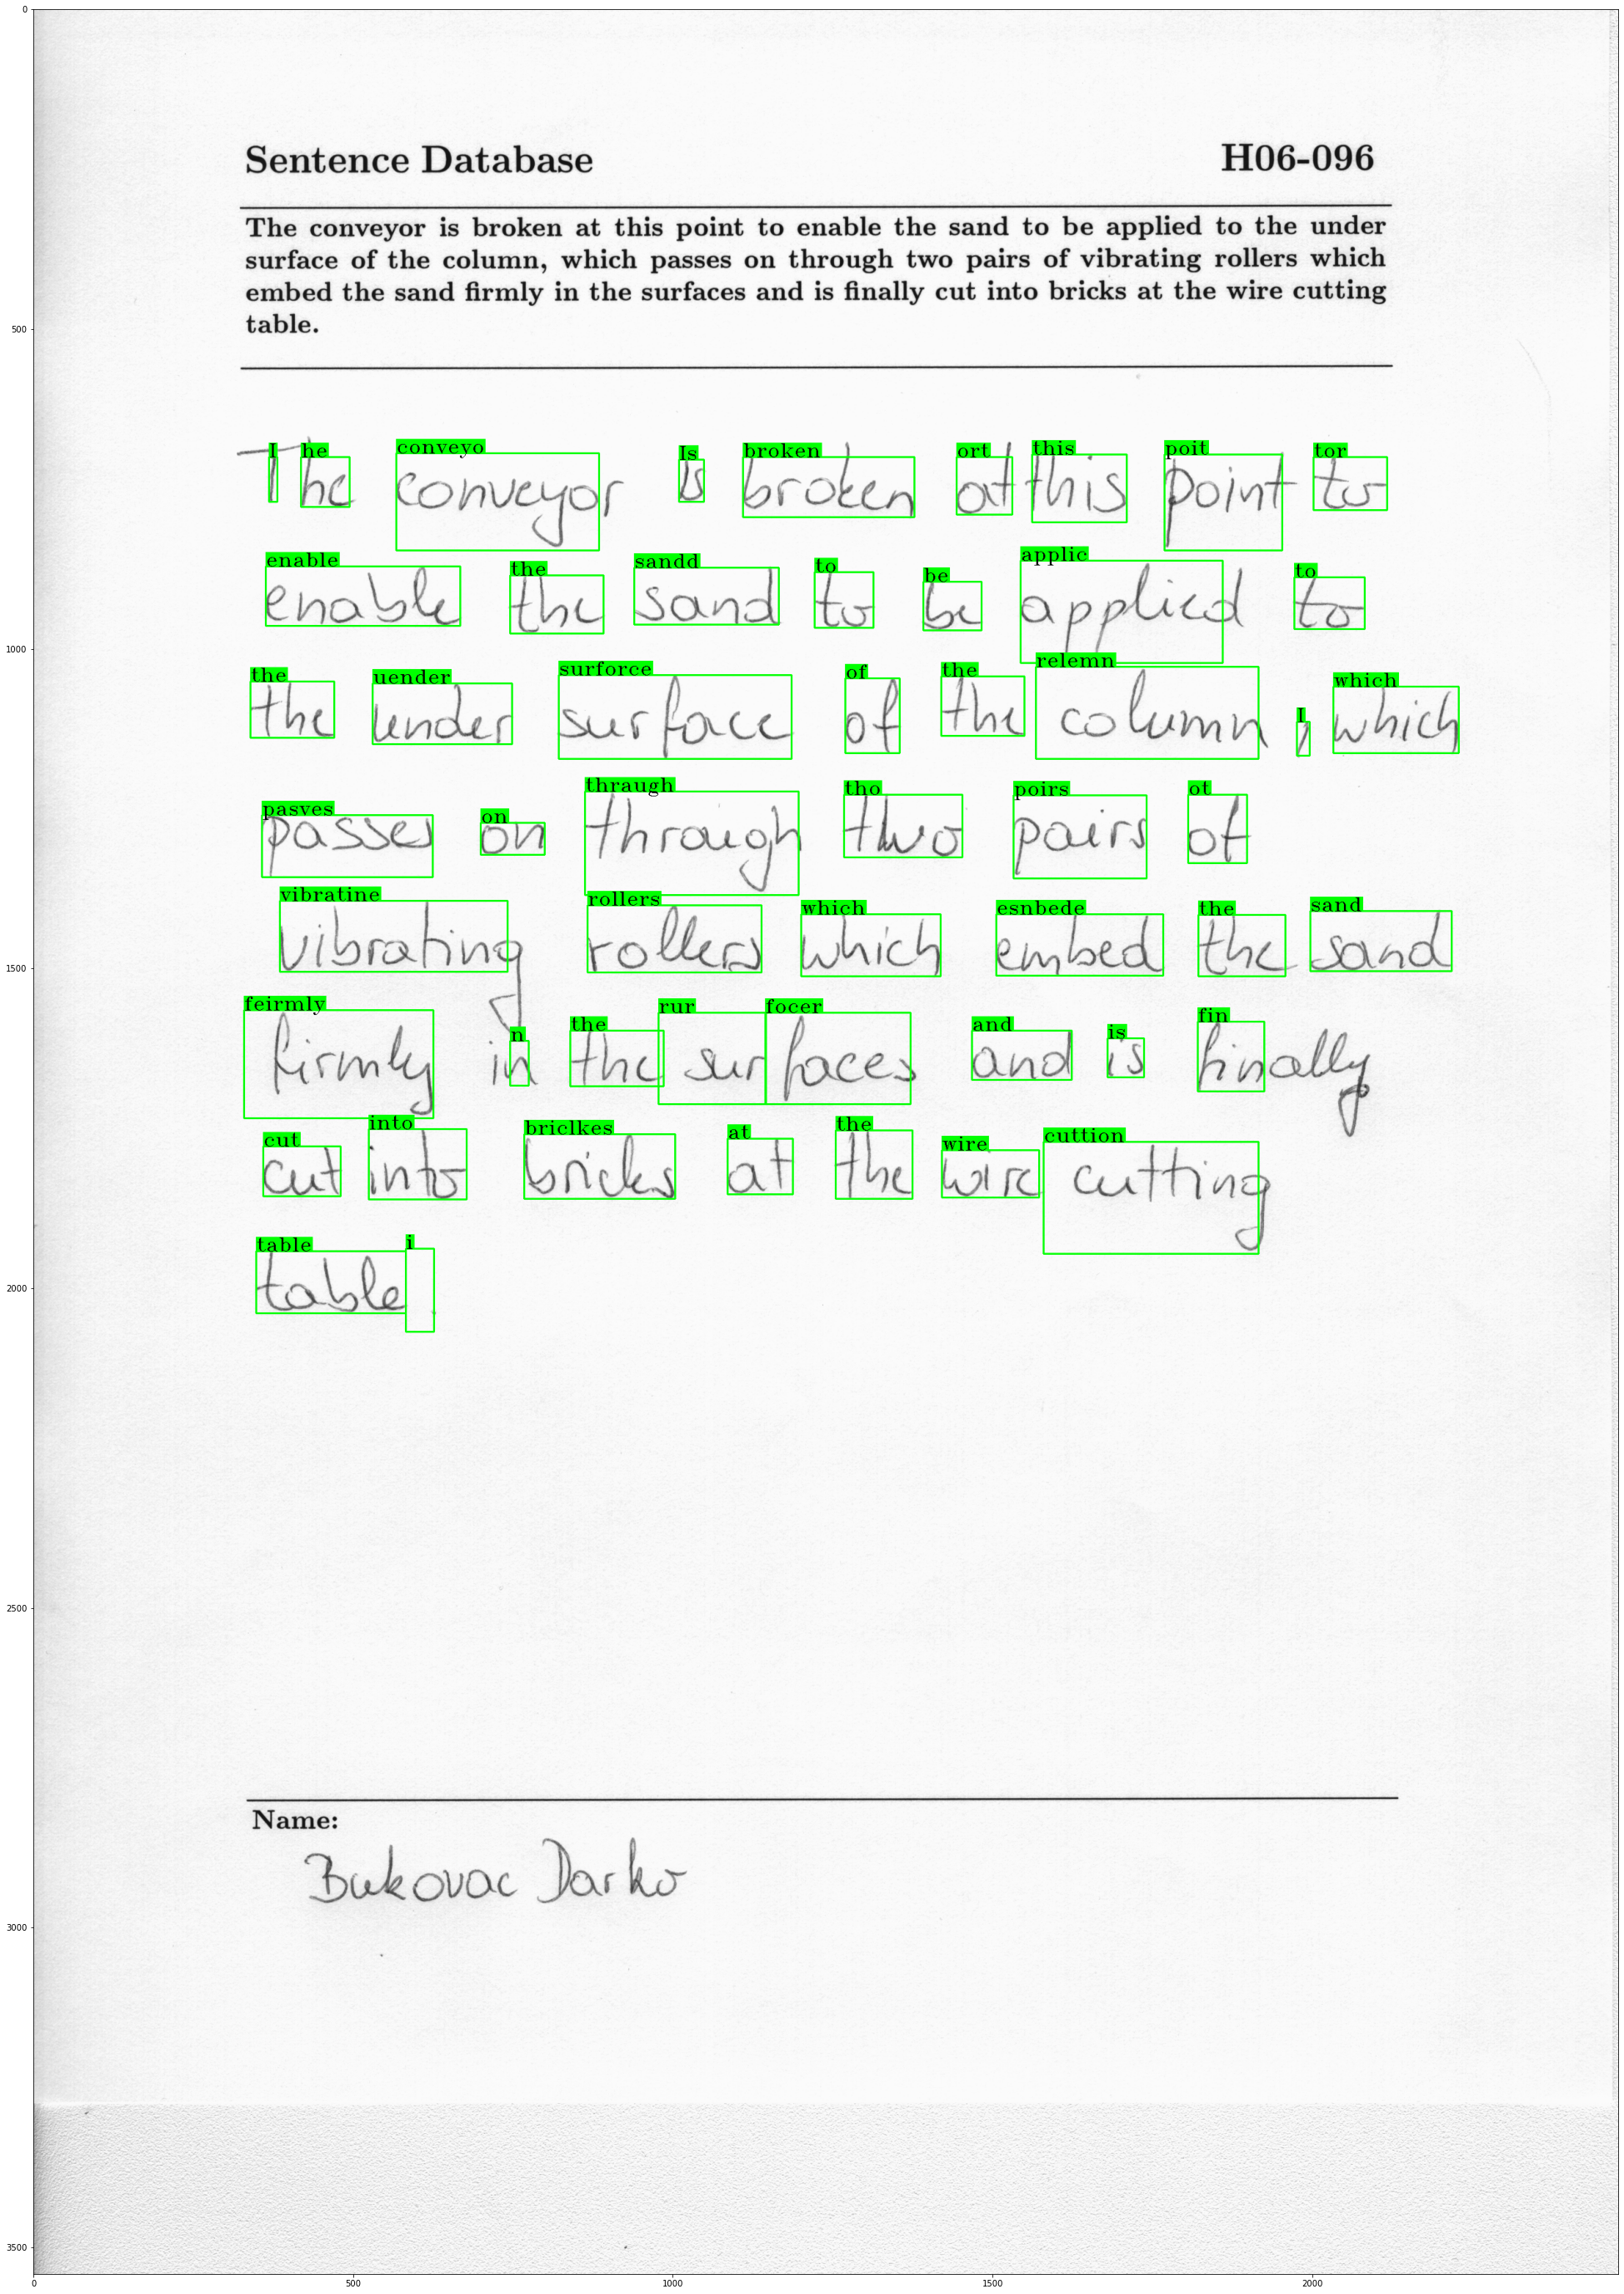 Sentence Database H06-096
The conveyor is broken at this point to enable the sand to be applied to the under
surface of the column, which passes on through two pairs of vibrating rollers which
embed the sand firmly in the surfaces and is finally cut into bricks at the wire cutting
table.
I he conveyo Is broken ort this poit tor
The conveyor is broken at this point to
enable the sandd to be applic to
enable the sand to be applied to
the uender surforce of the relemn I which
the under surface of the column, which
pasves on thraugh tho poirs ot
passes on through two pairs of
vibratine rollers which esnbede the sand
vibrating rollers which embed the sand
feirmly n the rur focer and is fin
firmly in the surfaces and is finally
cut into briclkes at the wire cuttion
cut into bricks at the wire cutting
table i
table.
Name:
Bukovac Darko
0
500
1000
1500
2000
2500
3000
3500
0 500 1000 1500 2000